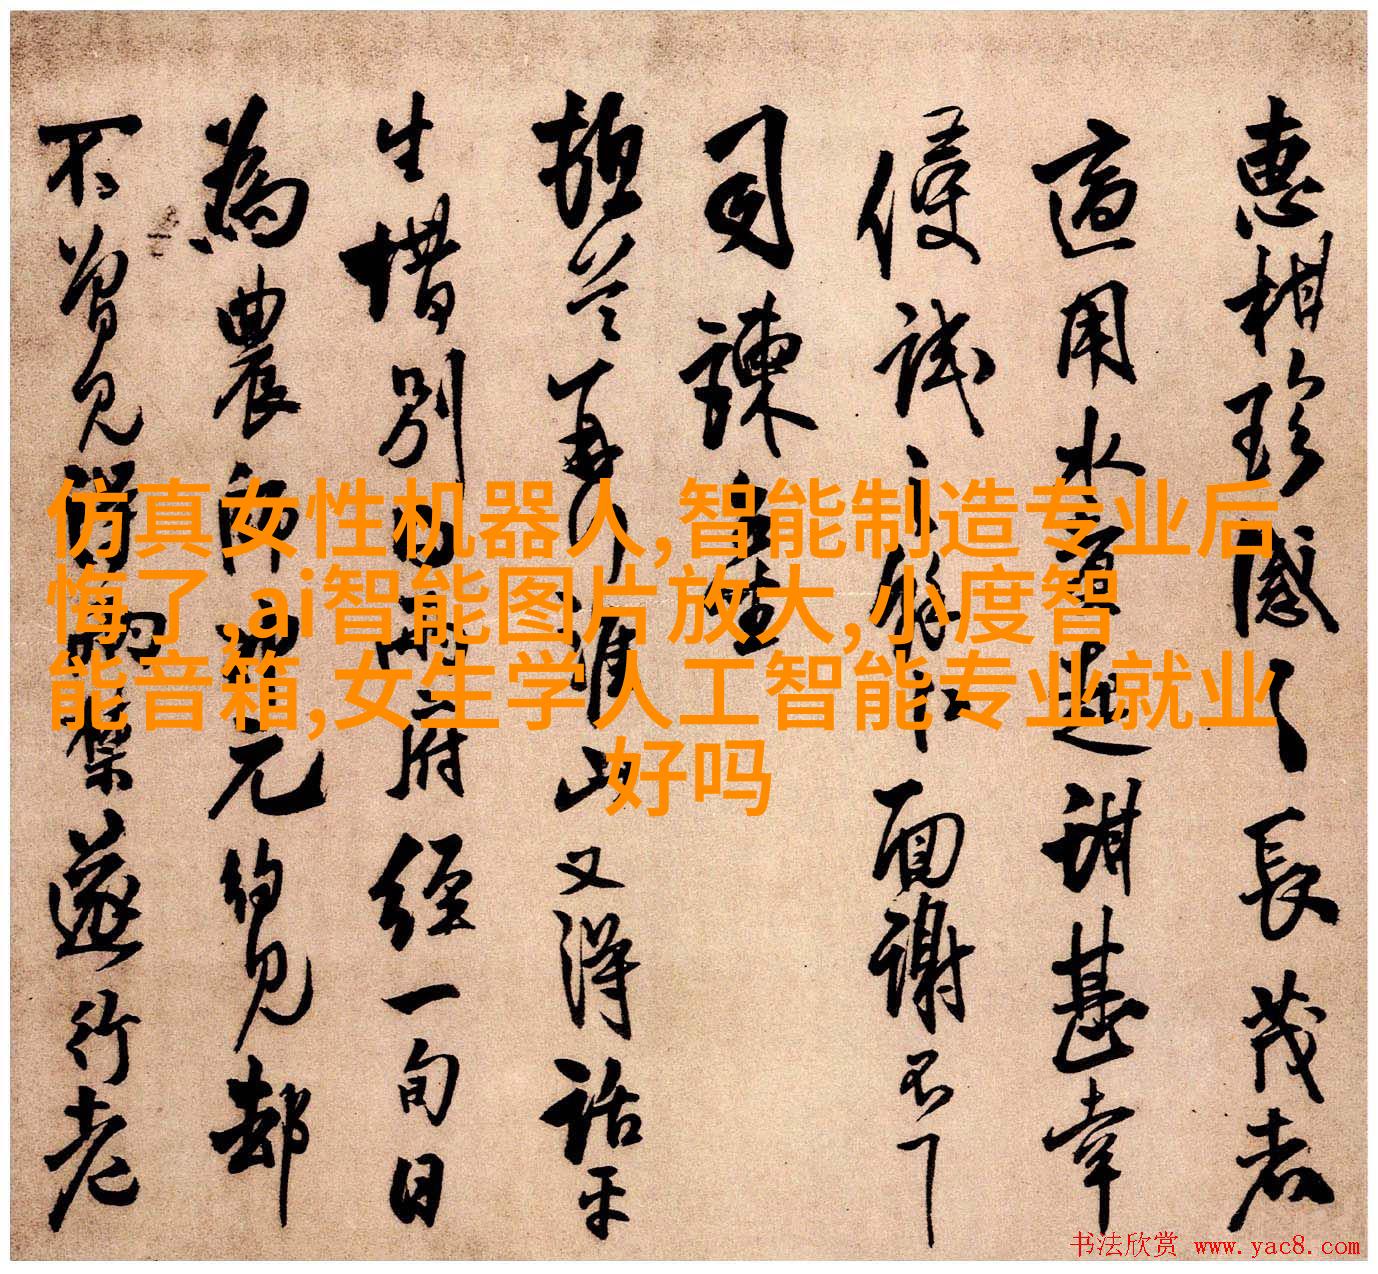 仿真女性机器人,智能制造专业后
悔了,ai智能图片放大,小度智
能音箱,女生学人工智能专业就业
好吗
惠柑珍感 長茂者
適用水 起甜甚幸
便試 面謝不
司諫
再 淮山又得話平
生惜別 府經一旬日
為農 元約見都
不曾見 遂行老
书法欣赏 www.yac8.com